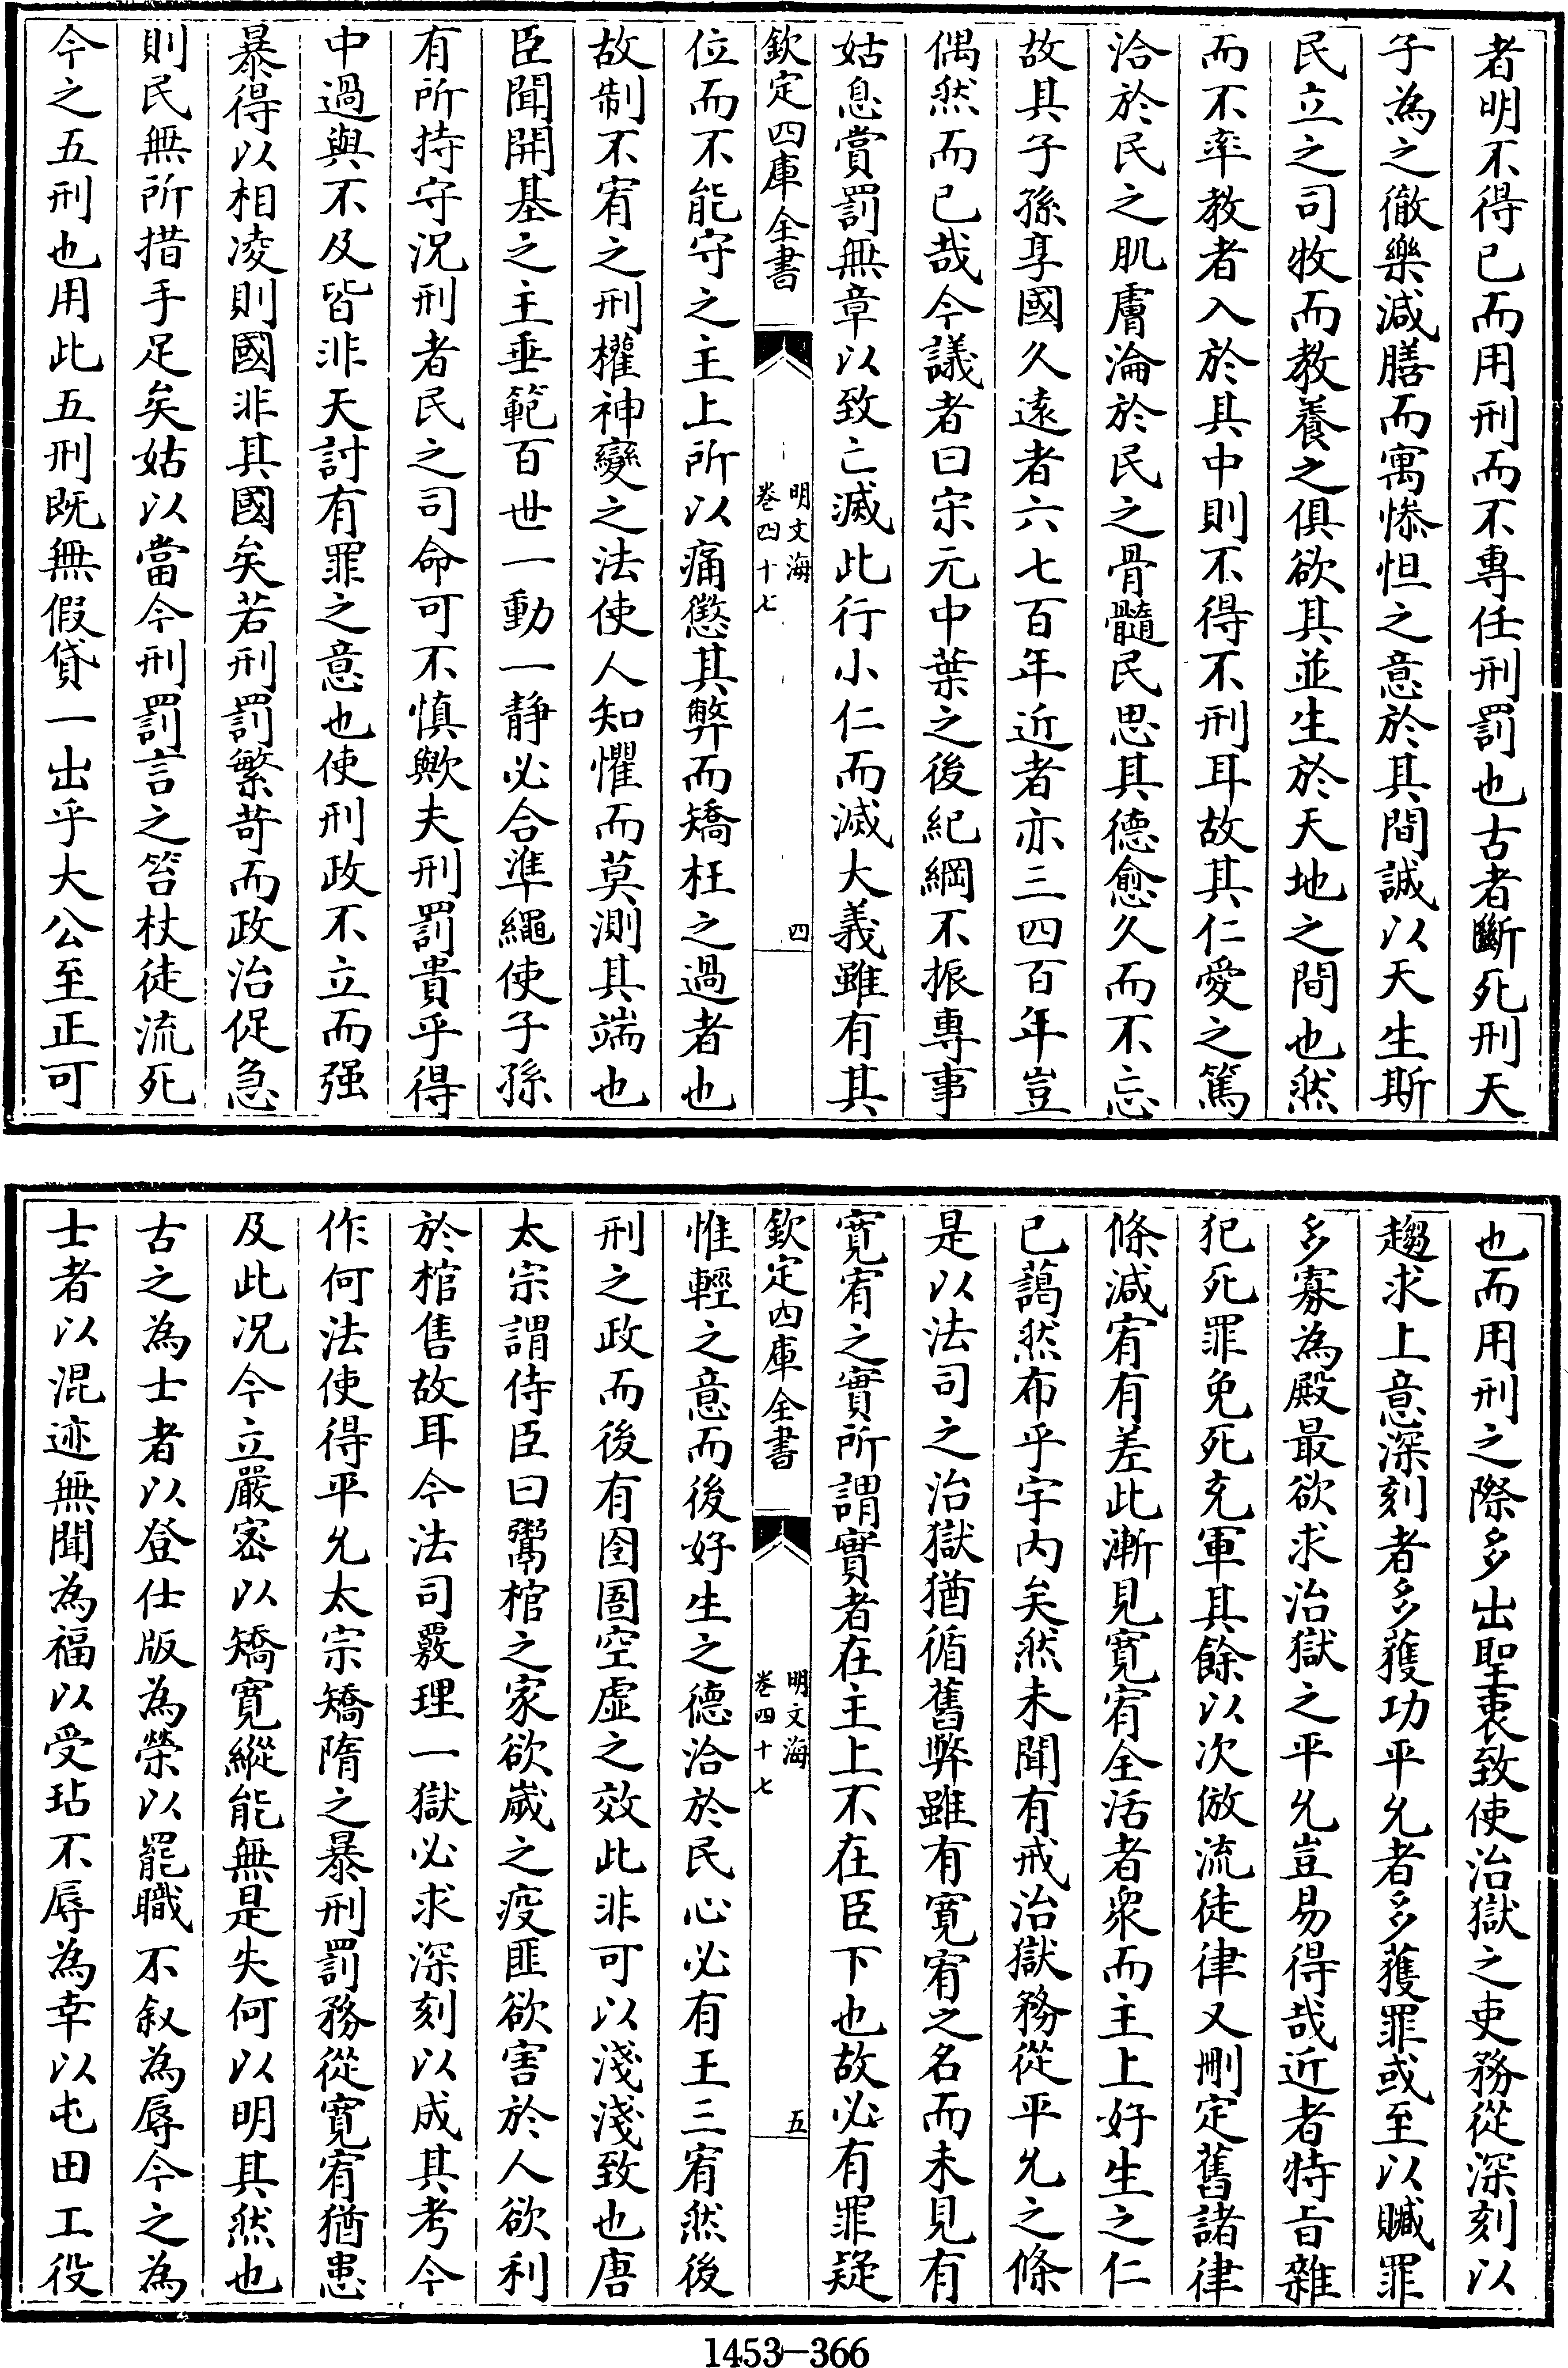 者明不得已而用刑而不專任刑罰也古者斷死刑天
子為之徹樂減膳而寓慘怛之意於其間誠以天生斯
民立之司牧而教養之俱欲其並生於天地之間也然
而不率教者入於其中則不得不刑耳故其仁愛之篤
洽於民之肌膚淪於民之骨髓民思其德愈久而不忘
故其子孫享國久遠者六七百年近者亦三四百年豈
偶然而已哉今議者曰宋元中葉之後紀綱不振專事
姑息賞罰無章以致亡滅此行小仁而滅大義雖有其
欽定四庫全書
明文海
卷四十七
四
位而不能守之主上所以痛懲其弊而矯枉之過者也
故制不宥之刑權神變之法使人知懼而莫測其端也
臣聞開基之主垂範百世一動一靜必合準繩使子孫
有所持守況刑者民之司命可不慎歟夫刑罰貴乎得
中過與不及皆非天討有罪之意也使刑政不立而强
暴得以相凌則國非其國矣若刑罰繁苛而政治促急
則民無所措手足矣姑以當今刑罰言之笞杖徒流死
今之五刑也用此五刑既無假貸一出乎大公至正可
也而用刑之際多出聖衷致使治獄之吏務從深刻以
趨求上意深刻者多獲功平允者多獲罪或至以贓罪
多寡為殿最欲求治獄之平允豈易得哉近者特旨雜
犯死罪免死充軍其餘以次倣流徒律又刪定舊諸律
條減宥有差此漸見寛宥全活者衆而主上好生之仁
已藹然布乎宇内矣然未聞有戒治獄務從平允之條
是以法司之治獄猶循舊弊雖有寛宥之名而未見有
寛宥之實所謂實者在主上不在臣下也故必有罪疑
欽定四庫全書
明文海
卷四十七
五
惟輕之意而後好生之德洽於民心必有王三宥然後
刑之政而後有囹圄空虛之效此非可以淺淺致也唐
太宗謂侍臣曰鬻棺之家欲歲之疫匪欲害於人欲利
於棺售故耳今法司覈理一獄必求深刻以成其考今
作何法使得平允太宗矯隋之暴刑罰務從寛宥猶患
及此况今立嚴密以矯寛縱能無是失何以明其然也
古之為士者以登仕版為榮以罷職不叙為辱今之為
士者以混迹無聞為福以受玷不辱為幸以屯田工役
1453-366